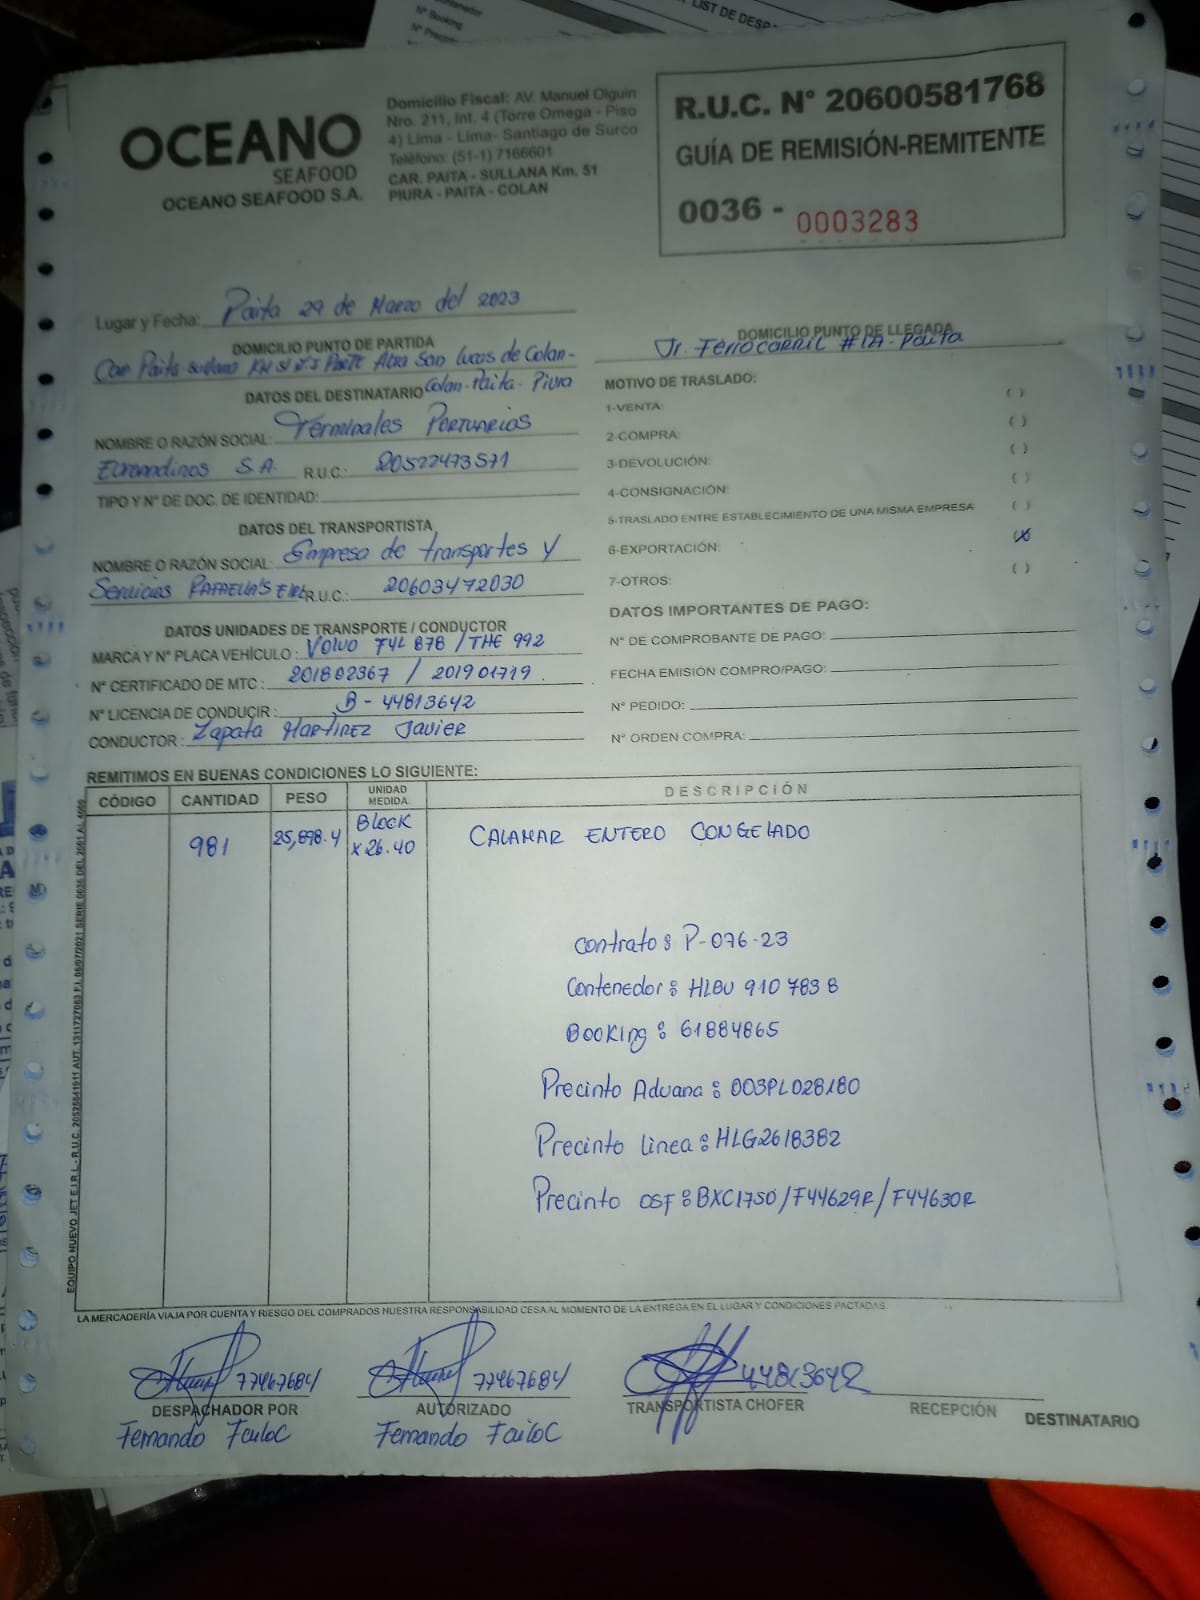 LIST DE DESP
Nº Booking
OCEANO
SEAFOOD
OCEANO SEAFOOD S.A.
Domicilio Fiscal: AV. Manuel Olguin
Nro. 211, Int. 4 (Torre Omega - Piso
4) Lima - Lima- Santiago de Surco
Teléfono: (51-1) 7166601
CAR. PAITA - SULLANA Km. 51
PIURA - PAITA - COLAN
R.U.C. N° 20600581768
GUÍA DE REMISIÓN-REMITENTE
0036 - 0003283
Lugar y Fecha: Paita 29 de Marzo del 2023
DOMICILIO PUNTO DE PARTIDA
Car Paita sullana KM 51 Parte Alta San Lucas de Colan-
Colan-Paita-Piura
DOMICILIO PUNTO DE LLEGADA
Jr. Ferrocarril #1A-Paita
DATOS DEL DESTINATARIO
NOMBRE O RAZÓN SOCIAL: Terminales Portuarios
Euroandinos S.A. R.U.C.: 20522473571
TIPO Y N° DE DOC. DE IDENTIDAD:
DATOS DEL TRANSPORTISTA
NOMBRE O RAZÓN SOCIAL: Empresa de transportes y
Servicios RAFAELLA'S EIRL R.U.C.: 20603472030
DATOS UNIDADES DE TRANSPORTE / CONDUCTOR
MARCA Y N° PLACA VEHÍCULO: Volvo F4L 878 / THE 992
N° CERTIFICADO DE MTC: 201802367 / 201901719
N° LICENCIA DE CONDUCIR: B-44813642
CONDUCTOR: Zapata MARTINEZ Javier
MOTIVO DE TRASLADO:
1-VENTA: ( )
2-COMPRA: ( )
3-DEVOLUCIÓN: ( )
4-CONSIGNACIÓN: ( )
5-TRASLADO ENTRE ESTABLECIMIENTO DE UNA MISMA EMPRESA ( )
6-EXPORTACIÓN: (X)
7-OTROS: ( )
DATOS IMPORTANTES DE PAGO:
N° DE COMPROBANTE DE PAGO:
FECHA EMISIÓN COMPRO/PAGO:
N° PEDIDO:
N° ORDEN COMPRA:
REMITIMOS EN BUENAS CONDICIONES LO SIGUIENTE:
CÓDIGO CANTIDAD PESO UNIDAD MEDIDA. DESCRIPCIÓN
981 25,898.4 BLOCK x 26.40 CALAMAR ENTERO CONGELADO
Contrato: P-076-23
Contenedor: HLBU 910 783 8
Booking: 61884865
Precinto Aduana: 003PL028180
Precinto linea: HLG2618382
Precinto OSF: BXC1750/F44629R/F44630R
EQUIPO NUEVO JET E.I.R.L - R.U.C. 20525841911 AUT. 1311727083 F.I. 06/07/2021 SERIE 0036 DEL 2001 AL 4000
LA MERCADERÍA VIAJA POR CUENTA Y RIESGO DEL COMPRADOS NUESTRA RESPONSABILIDAD CESA AL MOMENTO DE LA ENTREGA EN EL LUGAR Y CONDICIONES PACTADAS
77467684 77467684 44813642
DESPACHADOR POR AUTORIZADO TRANSPORTISTA CHOFER RECEPCIÓN DESTINATARIO
Fernando FailoC Fernando FailoC